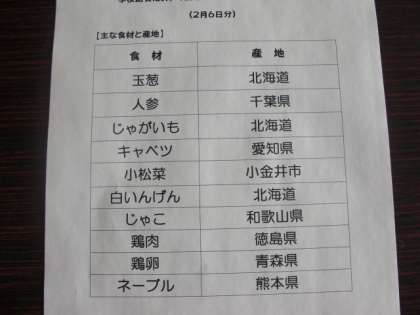 (2月6日分)
[主な食材と産地]
食 材 産 地
玉葱 北海道
人参 千葉県
じゃがいも 北海道
キャベツ 愛知県
小松菜 小金井市
白いんげん 北海道
じゃこ 和歌山県
鶏肉 徳島県
鶏卵 青森県
ネーブル 熊本県